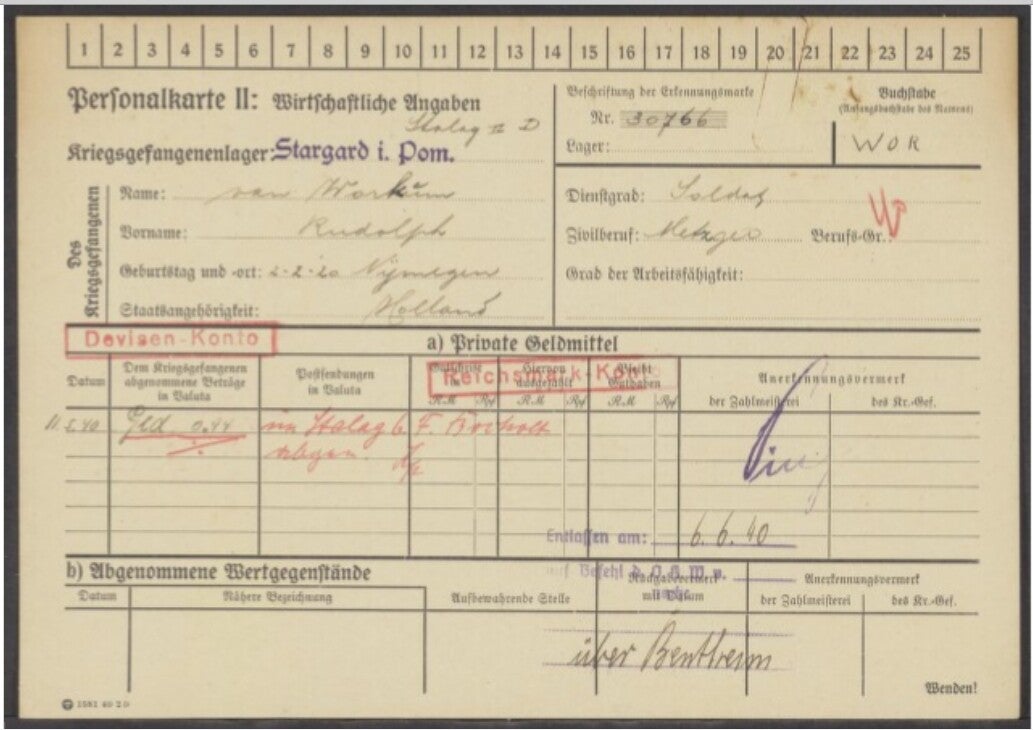 1 2 3 4 5 6 7 8 9 10 11 12 13 14 15 16 17 18 19 20 21 22 23 24 25
Personalkarte II: Wirtschaftliche Angaben
Beschriftung der Erkennungsmarke
Buchstabe
(Anfangsbuchstabe des Namens)
Stalag II D
Nr. 30766
Kriegsgefangenenlager: Stargard i. Pom.
Lager:
WOR
Des Kriegsgefangenen
Name: van Workum
Dienstgrad: Soldat
Vorname: Rudolph
Zivilberuf: Metzger Berufs-Gr.:
Geburtstag und -ort: 2-2-20 Nijmegen
Grad der Arbeitsfähigkeit:
Staatsangehörigkeit: Holland
Devisen-Konto
a) Private Geldmittel
Reichsmark-Konto
Datum
Dem Kriegsgefangenen abgenommene Beträge in Valuta
Postsendungen in Valuta
Gutschrift in
RM Rpf
Hiervon ausgezahlt
RM Rpf
Bleibt Guthaben
RM Rpf
Anerkennungsvermerk
der Zahlmeisterei
des Kr.-Gef.
Gld 0.44 im Stalag 6. F. Bocholt
abgen.
Entlassen am: 6.6.40
auf Befehl d. O.K.W. v.
b) Abgenommene Wertgegenstände
Datum
Nähere Bezeichnung
Aufbewahrende Stelle
Rückgabevermerk mit Datum
Anerkennungsvermerk
der Zahlmeisterei
des Kr.-Gef.
über Bentheim
Wenden!